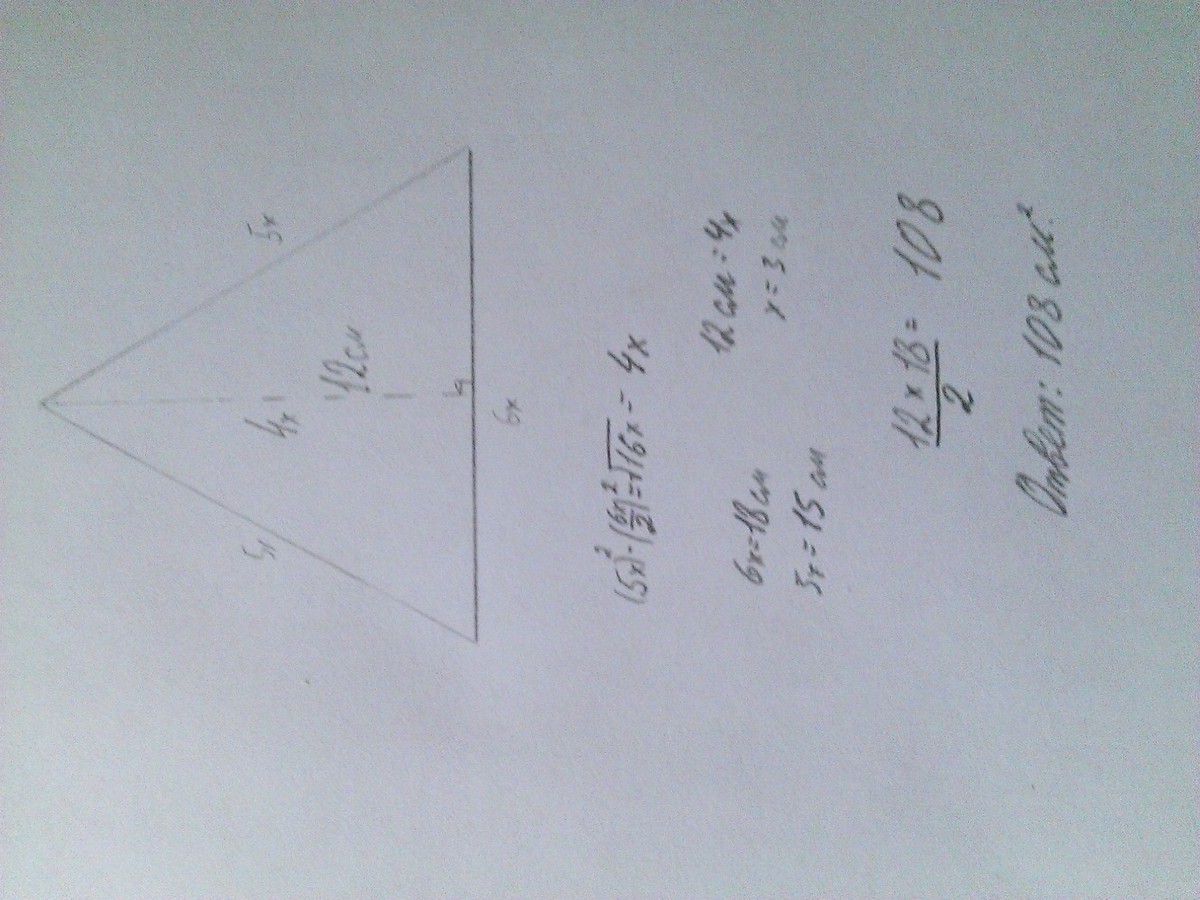 5x
5x
4x
12 см
6x
(5x)² - (6x/2)² = √16x = 4x
12 см = 4x
6x = 18 см
x = 3 см
5x = 15 см
12 × 18 / 2 = 108
Ответ: 108 см.²